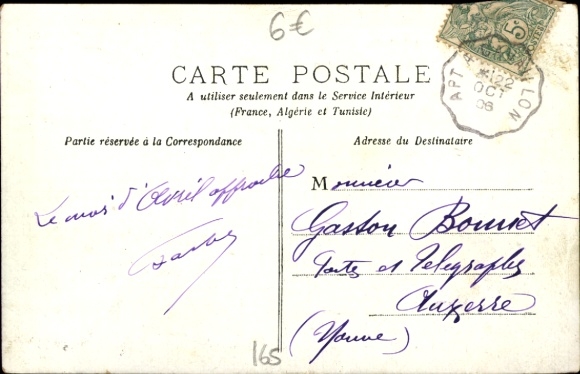 6€
CARTE POSTALE
A utiliser seulement dans le Service Intérieur
(France, Algérie et Tunisie)
5c
APT A LON
122
OCT
08
Partie réservée à la Correspondance
Adresse du Destinataire
Le mois d'Avril approche
Monsieur
Gaston Bonnet
Postes et Télégraphes
Auxerre
(Yonne)
165